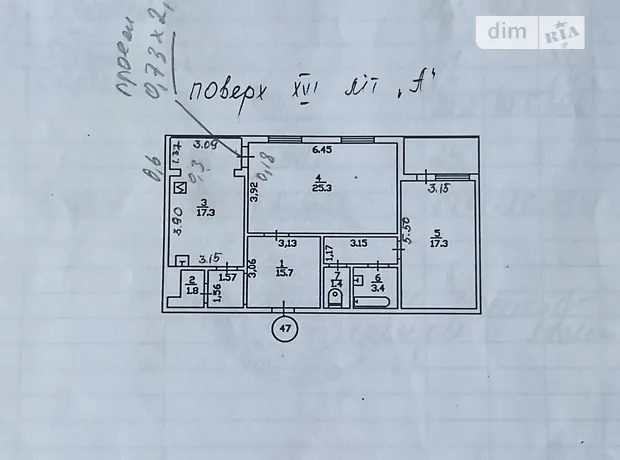 dim RIA
проем
0,73 x 2,
поверх XVI літ „А"
0,6
1.37
3.09
0,3
0,18
3
17.3
3.90
3.15
3,92
6.45
4
25.3
3.15
5.50
5
17.3
3,13
1
15.7
3,06
3.15
1,17
7
1.4
6
3.4
2
1.8
1.57
1,56
47